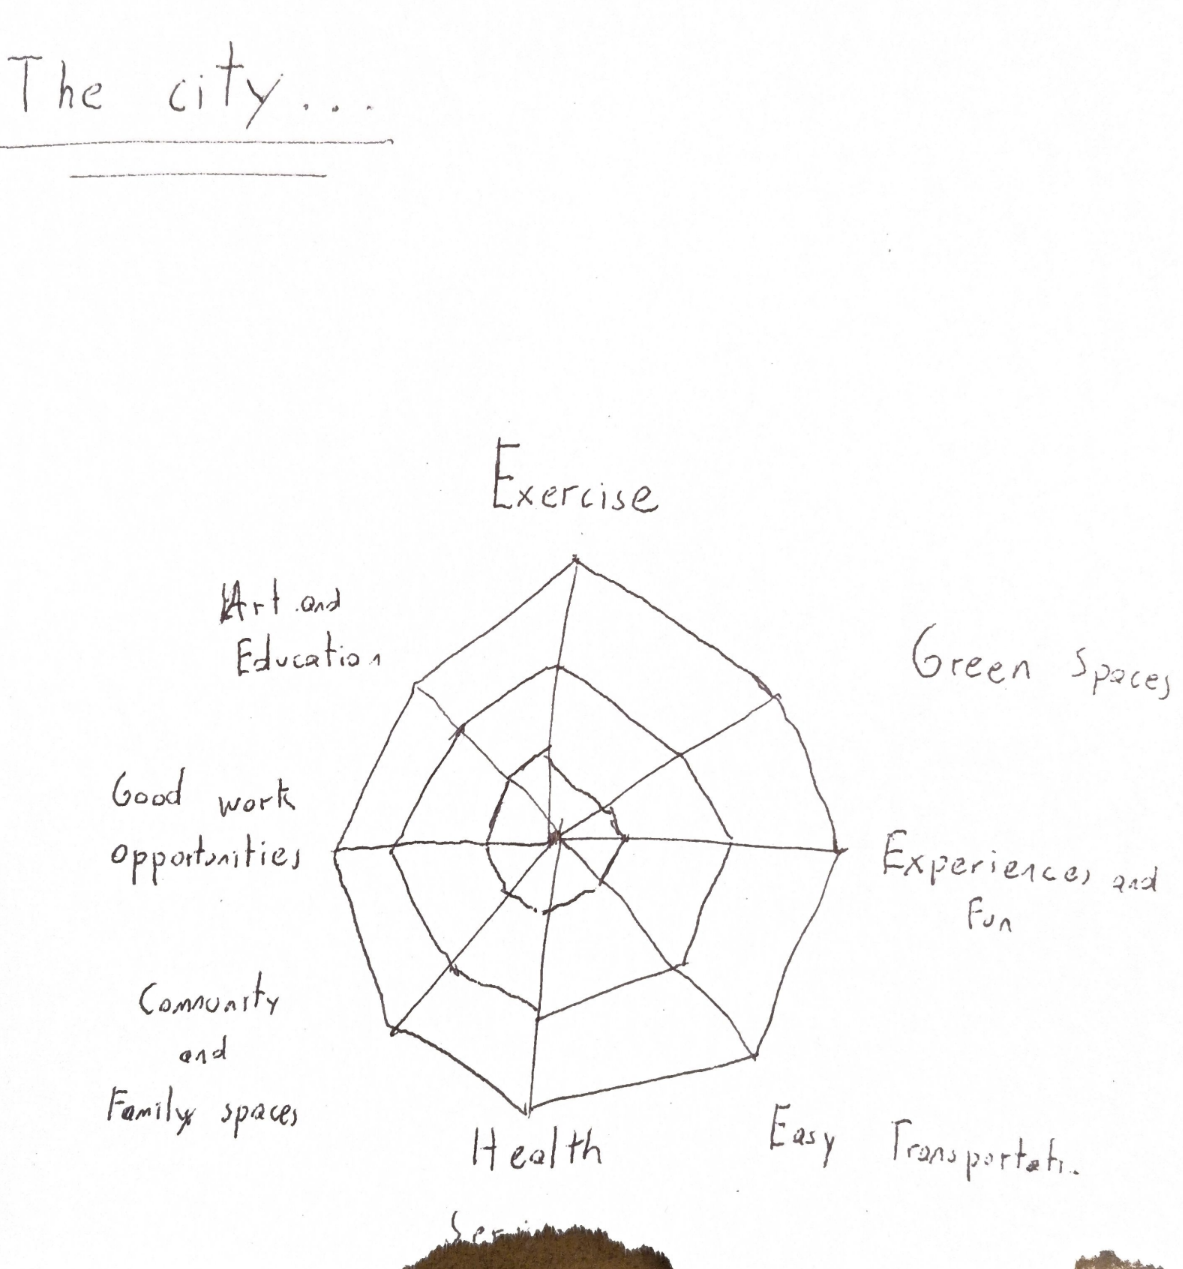 The city...
Exercise
Art and
Education
Green Spaces
Good work
opportunities
Experiences and
Fun
Community
and
Family spaces
Health
Easy